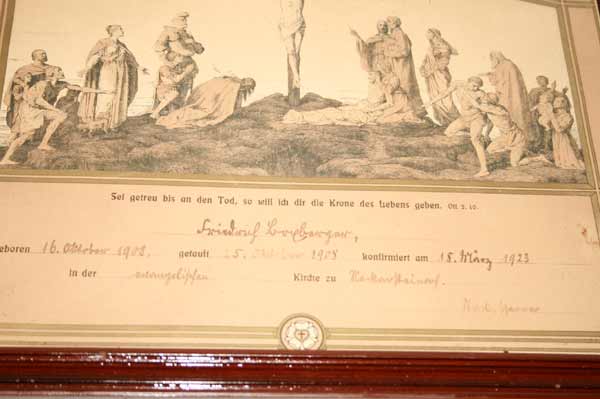 Sei getreu bis an den Tod, so will ich dir die Krone des Lebens geben. Off. 2. 10.
Friedrich
eboren 16. Oktober 1908, getauft 25. Oktober 1908 konfirmiert am 18. März 1923
in der evangelischen Kirche zu